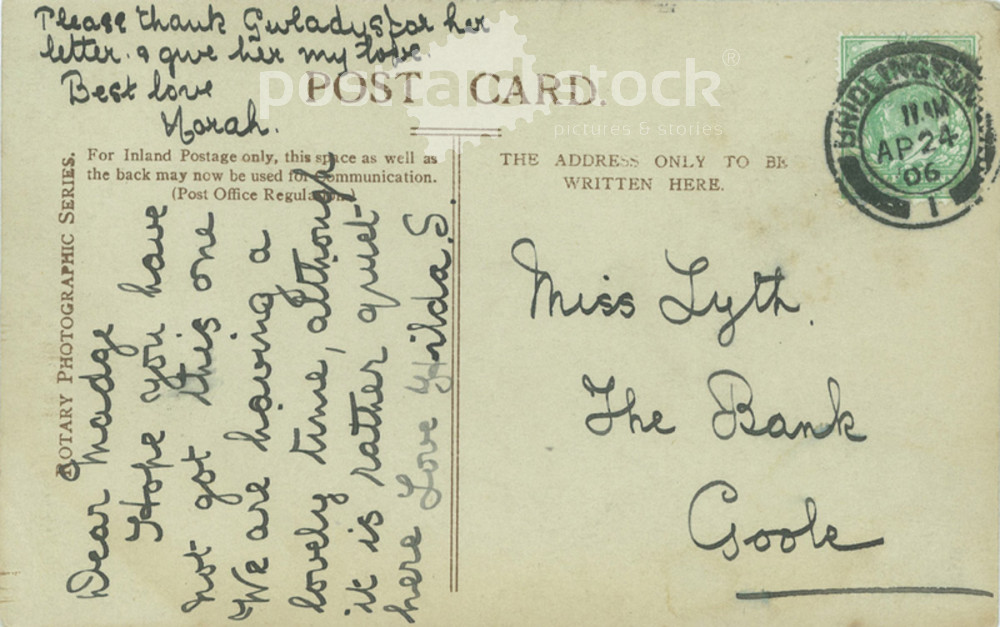 Please thank Gwladys for her
letter. & give her my love.
Best love
Norah.
POST CARD.
postcardstock®
pictures & stories
For Inland Postage only, this space as well as
the back may now be used for communication.
(Post Office Regulation)
ROTARY PHOTOGRAPHIC SERIES.
Dear Madge
Hope you have
not got this one
We are having a
lovely time, although
it is rather quiet
here Love Hilda. S.
THE ADDRESS ONLY TO BE
WRITTEN HERE.
BRIDLINGTON
11 AM
AP 24
06
1
Miss Lyth.
The Bank
Goole